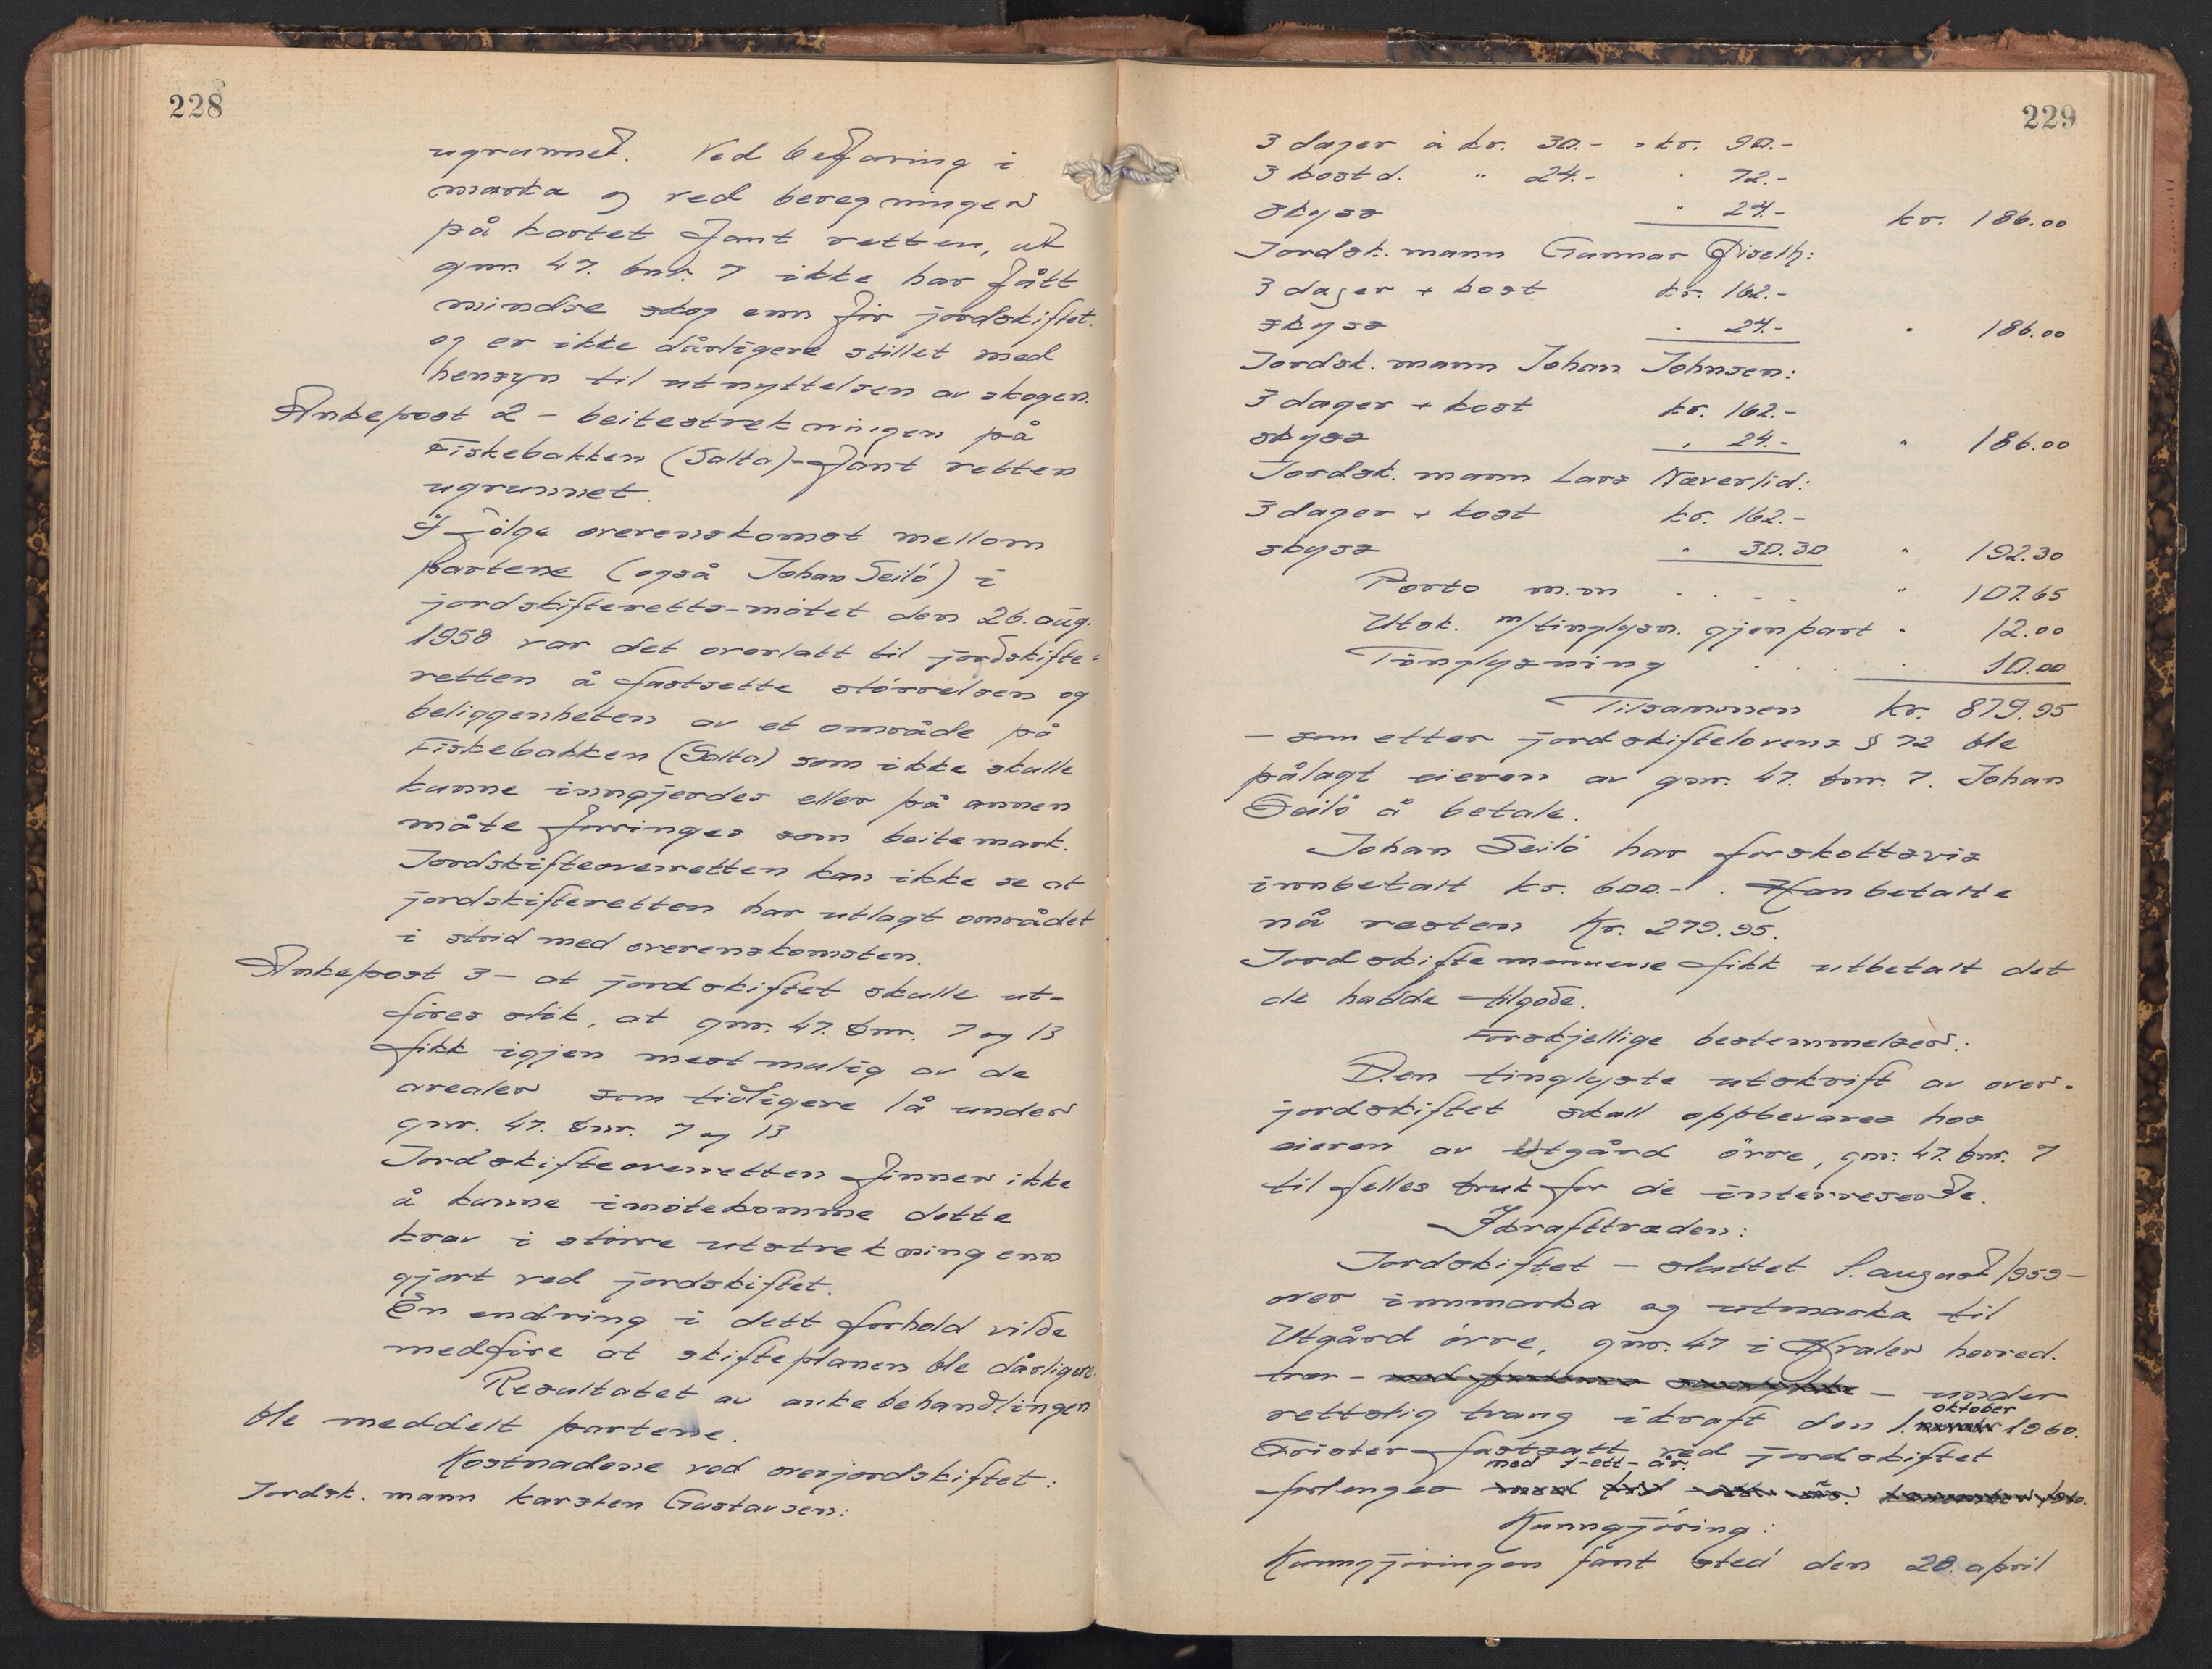 228
ugrunnet. Ved befaring i
marka og ved beregninger
på kartet fant retten, at
gnr. 47. bnr. 7 ikke har fått
mindre skog enn för jordskiftet.
og er ikke dårligere stillet med
hensyn til utnyttelsen av skogen.
Ankepost 2 - beitestrekningen på
Fiskebakken (Salta) - fant retten
ugrunnet.
I fölge overenskomst mellom
partene (også Johan Seilö) i
jordskifteretts-mötet den 26. aug.
1958 var det overlatt til jordskifte=
retten å fastsette störrelsen og
beliggenheten av et område på
Fiskebakken (Salta) som ikke skulle
kunne inngjerdes eller på annen
måte forringes som beitemark.
Jordskifteoverretten kan ikke se at
jordskifteretten har utlagt området
i strid med overenskomsten.
Ankepost 3 - at jordskiftet skulle ut-
föres slik, at gnr. 47. bnr. 7 og 13
fikk igjen mest mulig av de
arealer som tidligere lå under
gnr. 47. bnr. 7 og 13
Jordskifteoverretten finner ikke
å kunne imötekomme dette
krav i större utstrekning enn
gjort ved jordskiftet.
En endring i dett forhold vilde
medföre at skifteplanen ble dårligere.
Resultatet av ankebehandlingen
ble meddelt partene.
Kostnadene ved overjordskiftet:
Jordsk. mann Karsten Gustavsen:
229
3 dager à kr. 30.- = kr. 90.-
3 kostd. " 24.- " 72.-
skyss " 24.- kr. 186.00
Jordsk. mann Gunnar Diseth:
3 dager + kost kr. 162.-
skyss " 24.- " 186.00
Jordsk. mann Johan Johnsen:
3 dager + kost kr. 162.-
skyss " 24.- " 186.00
Jordsk. mann Lars Næverlid:
3 dager + kost kr. 162.-
skyss " 30.30 " 192.30
Porto m.m . . - - " 107.65
Utsk. m/tinglysn. gjenpart " 12.00
Tinglysning . . . . 10.00
Tilsammen kr. 879.95
- som etter jordskiftelovens § 72 ble
pålagt eieren av gnr. 47. bnr. 7. Johan
Seilö å betale.
Johan Seilö har forskottsvis
innbetalt kr. 600.- . Han betalte
nå resten Kr. 279.95.
Jordskiftemennene fikk utbetalt det
de hadde tilgode.
Forskjellige bestemmelser:
Den tinglyste utskrift av over-
jordskiftet skall oppbevares hos
eieren av Utgård övre, gnr. 47. bnr. 7
til felles bruk for de interreserte.
Ikrafttræden:
Jordskiftet - sluttet 1. august 1959 -
over innmarka og utmarka til
Utgård övre, gnr. 47 i Hvaler herred.
trær - - under
oktober
rettslig tvang ikraft den 1. 1960.
Frister fastsatt ved jordskiftet
med 1-ett-år.
forlenges
Kunngjöring:
Kunngjöringen fant sted den 28. april